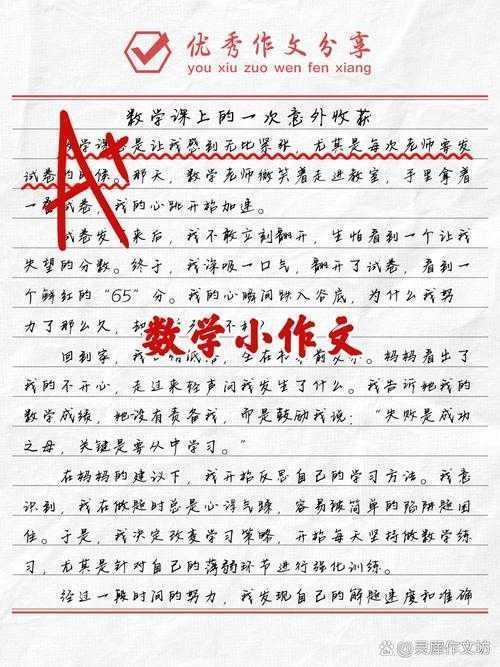 优秀作文分享
you xiu zuo wen fen xiang
数学课上的一次意外收获
A+
学课是让我感到无比紧张，尤其是每次老师要发
试卷的时候。那天，数学老师微笑着走进教室，手里拿着
一试卷，我的心跳开始加速。
试卷发来后，我不敢立刻翻开，生怕看到一个让我
失望的分数。终于，我深吸一口气，翻开了试卷，看到一
个鲜红的“65”分。我的心瞬间跌入谷底，为什么我努
力了那么久，
数学小作文
回到家，我坐在。妈妈看出了
我的不开心，走过来轻声问我发生了什么。我告诉她我的
数学成绩，她没有责备我，而是鼓励我说：“失败是成功
之母，关键是要从中学习。”
在妈妈的建议下，我开始反思自己的学习方法。我意
识到，我在做题时总是心浮气躁，容易被简单的陷阱题困
住。于是，我决定改变学习策略，开始每天坚持做数学练
习，尤其是针对自己的薄弱环节进行强化训练。
经过一段时间的努力，我发现自己的解题速度和准确
@灵犀作文坊